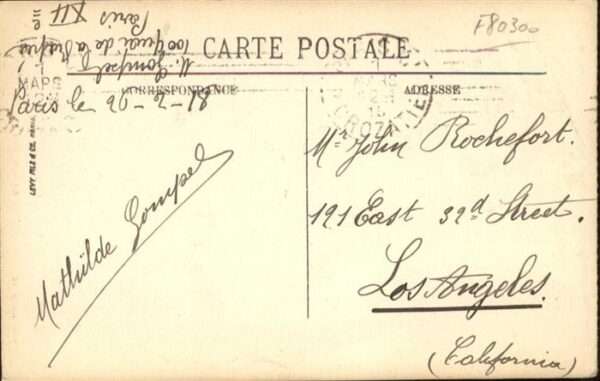 F80300
M. Gompel
100 quai de la Rapée
Paris XII
CARTE POSTALE
CORRESPONDANCE
ADRESSE
MARS
Paris le 26-2-18
LEVY FILS & CIE. PARIS
Mr John Rochefort.
121 East 32d Street.
Los Angeles.
(California)
Mathilde Gompel